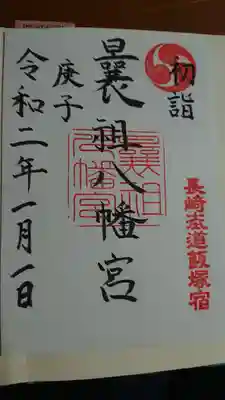 初詣
曩祖八幡宮
曩祖八幡宮
長崎街道飯塚宿
庚子
令和二年一月一日